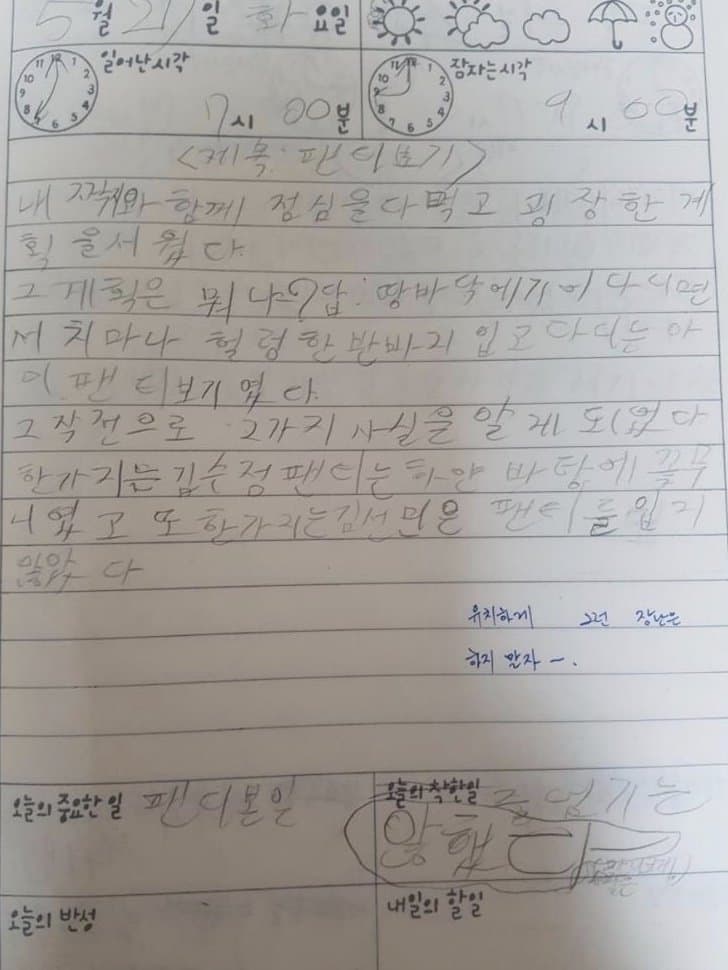 5월 21일 화요일
일어난시각
잠자는시각
7시 00분
9시 00분
<제목: 팬티보기>
내 짝궈와 함께 점심을다먹고 굉장한 계
획 을서 웠다.
그 계획은 뭐냐?답: 땅바닥에기어다니면
서 치마나 헐렁한반바지 입고다니는 아
이 팬티보기였다.
그작전으로 2가지 사실을 알게 되었다
한가지는김수정팬티는하얀 바탕에 꽃무
니였고 또한가지는김선미은 팬티를입지
않았다
유치하게 그런 장난은
하지 말자 ~.
오늘의 중요한 일 팬티본일
오늘의 착한일 줄넘기는
오늘의 반성
내일의 할일